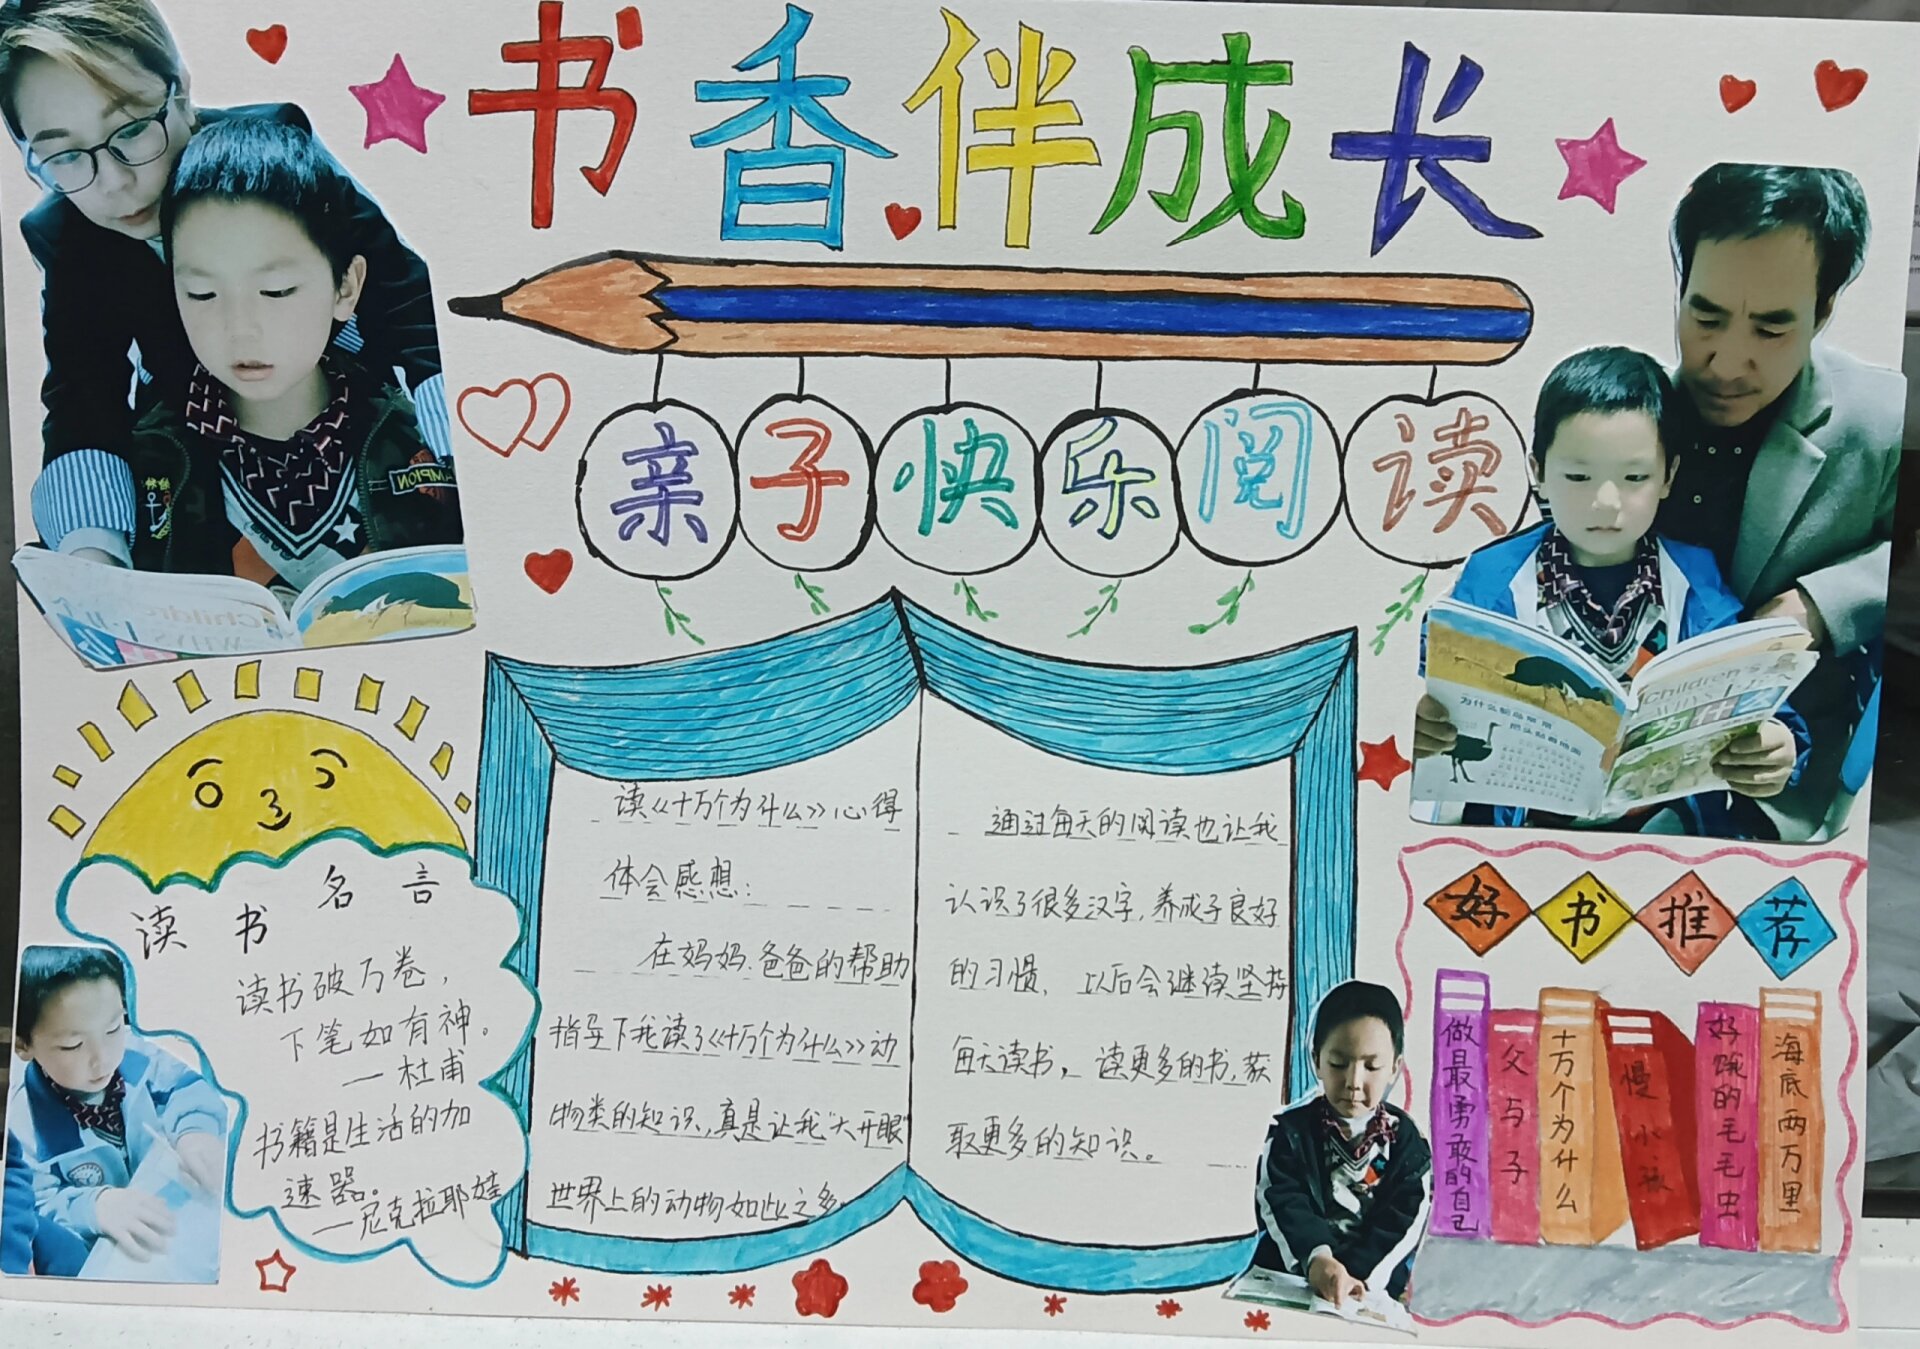 书香伴成长
亲子快乐阅读
读书名言
读书破万卷，
下笔如有神。
一杜甫
书籍是生活的加
速器。
一尼克拉耶娃
读《十万个为什么》心得
体会感想：
在妈妈.爸爸的帮助
指导下我读了《十万个为什么》动
物类的知识，真是让我"大开眼"
世界上的动物如此之多
通过每天的阅读也让我
认识了很多汉字，养成了良好
的习惯、以后会继续坚持
每天读书，读更多的书，获
取更多的知识。
好书推荐
做最勇敢的自己
父与子
十万个为什么
慢小孩
好饿的毛毛虫
海底两万里
为什么鸵鸟常常
把头贴着地面
Children's
WHYS
为什么